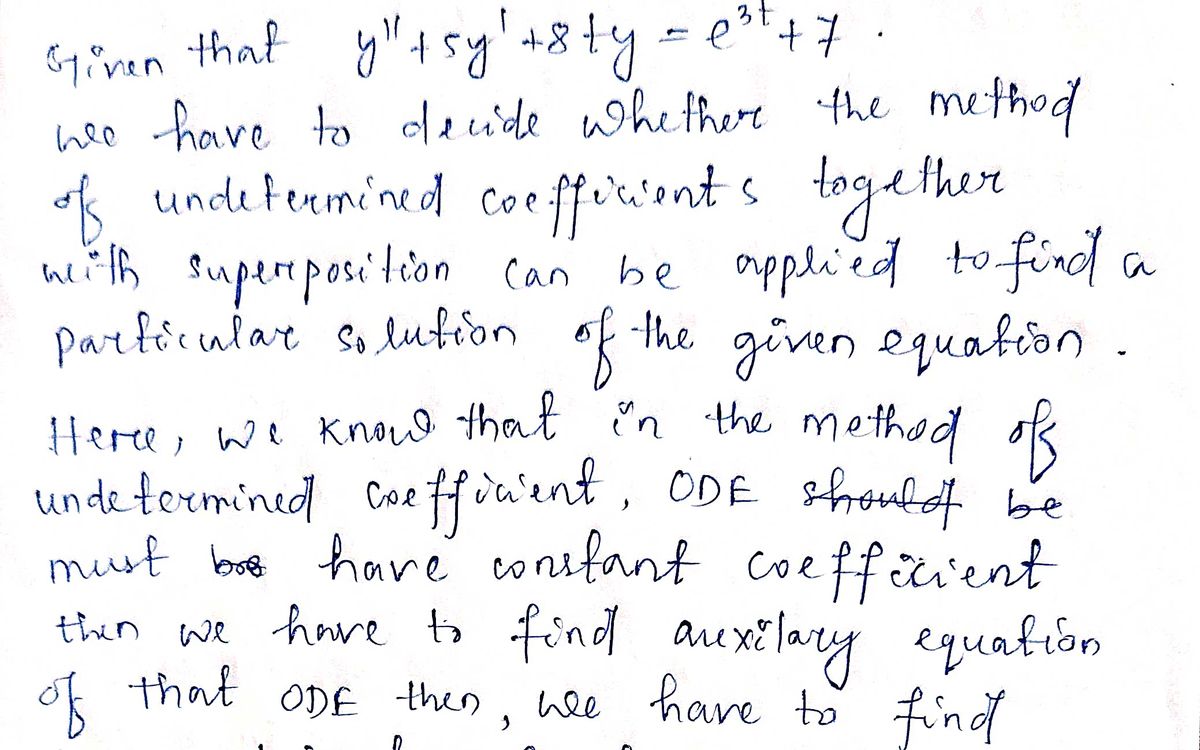 Given that y"+5y'+8ty = e^{3t}+7.
we have to decide whether the method
of undetermined coefficients together
with superposition can be applied to find a
particular solution of the given equation.
Here, we know that in the method of
undetermined coefficient, ODE should be
must have constant coefficient
then we have to find auxilary equation
of that ODE then, we have to find